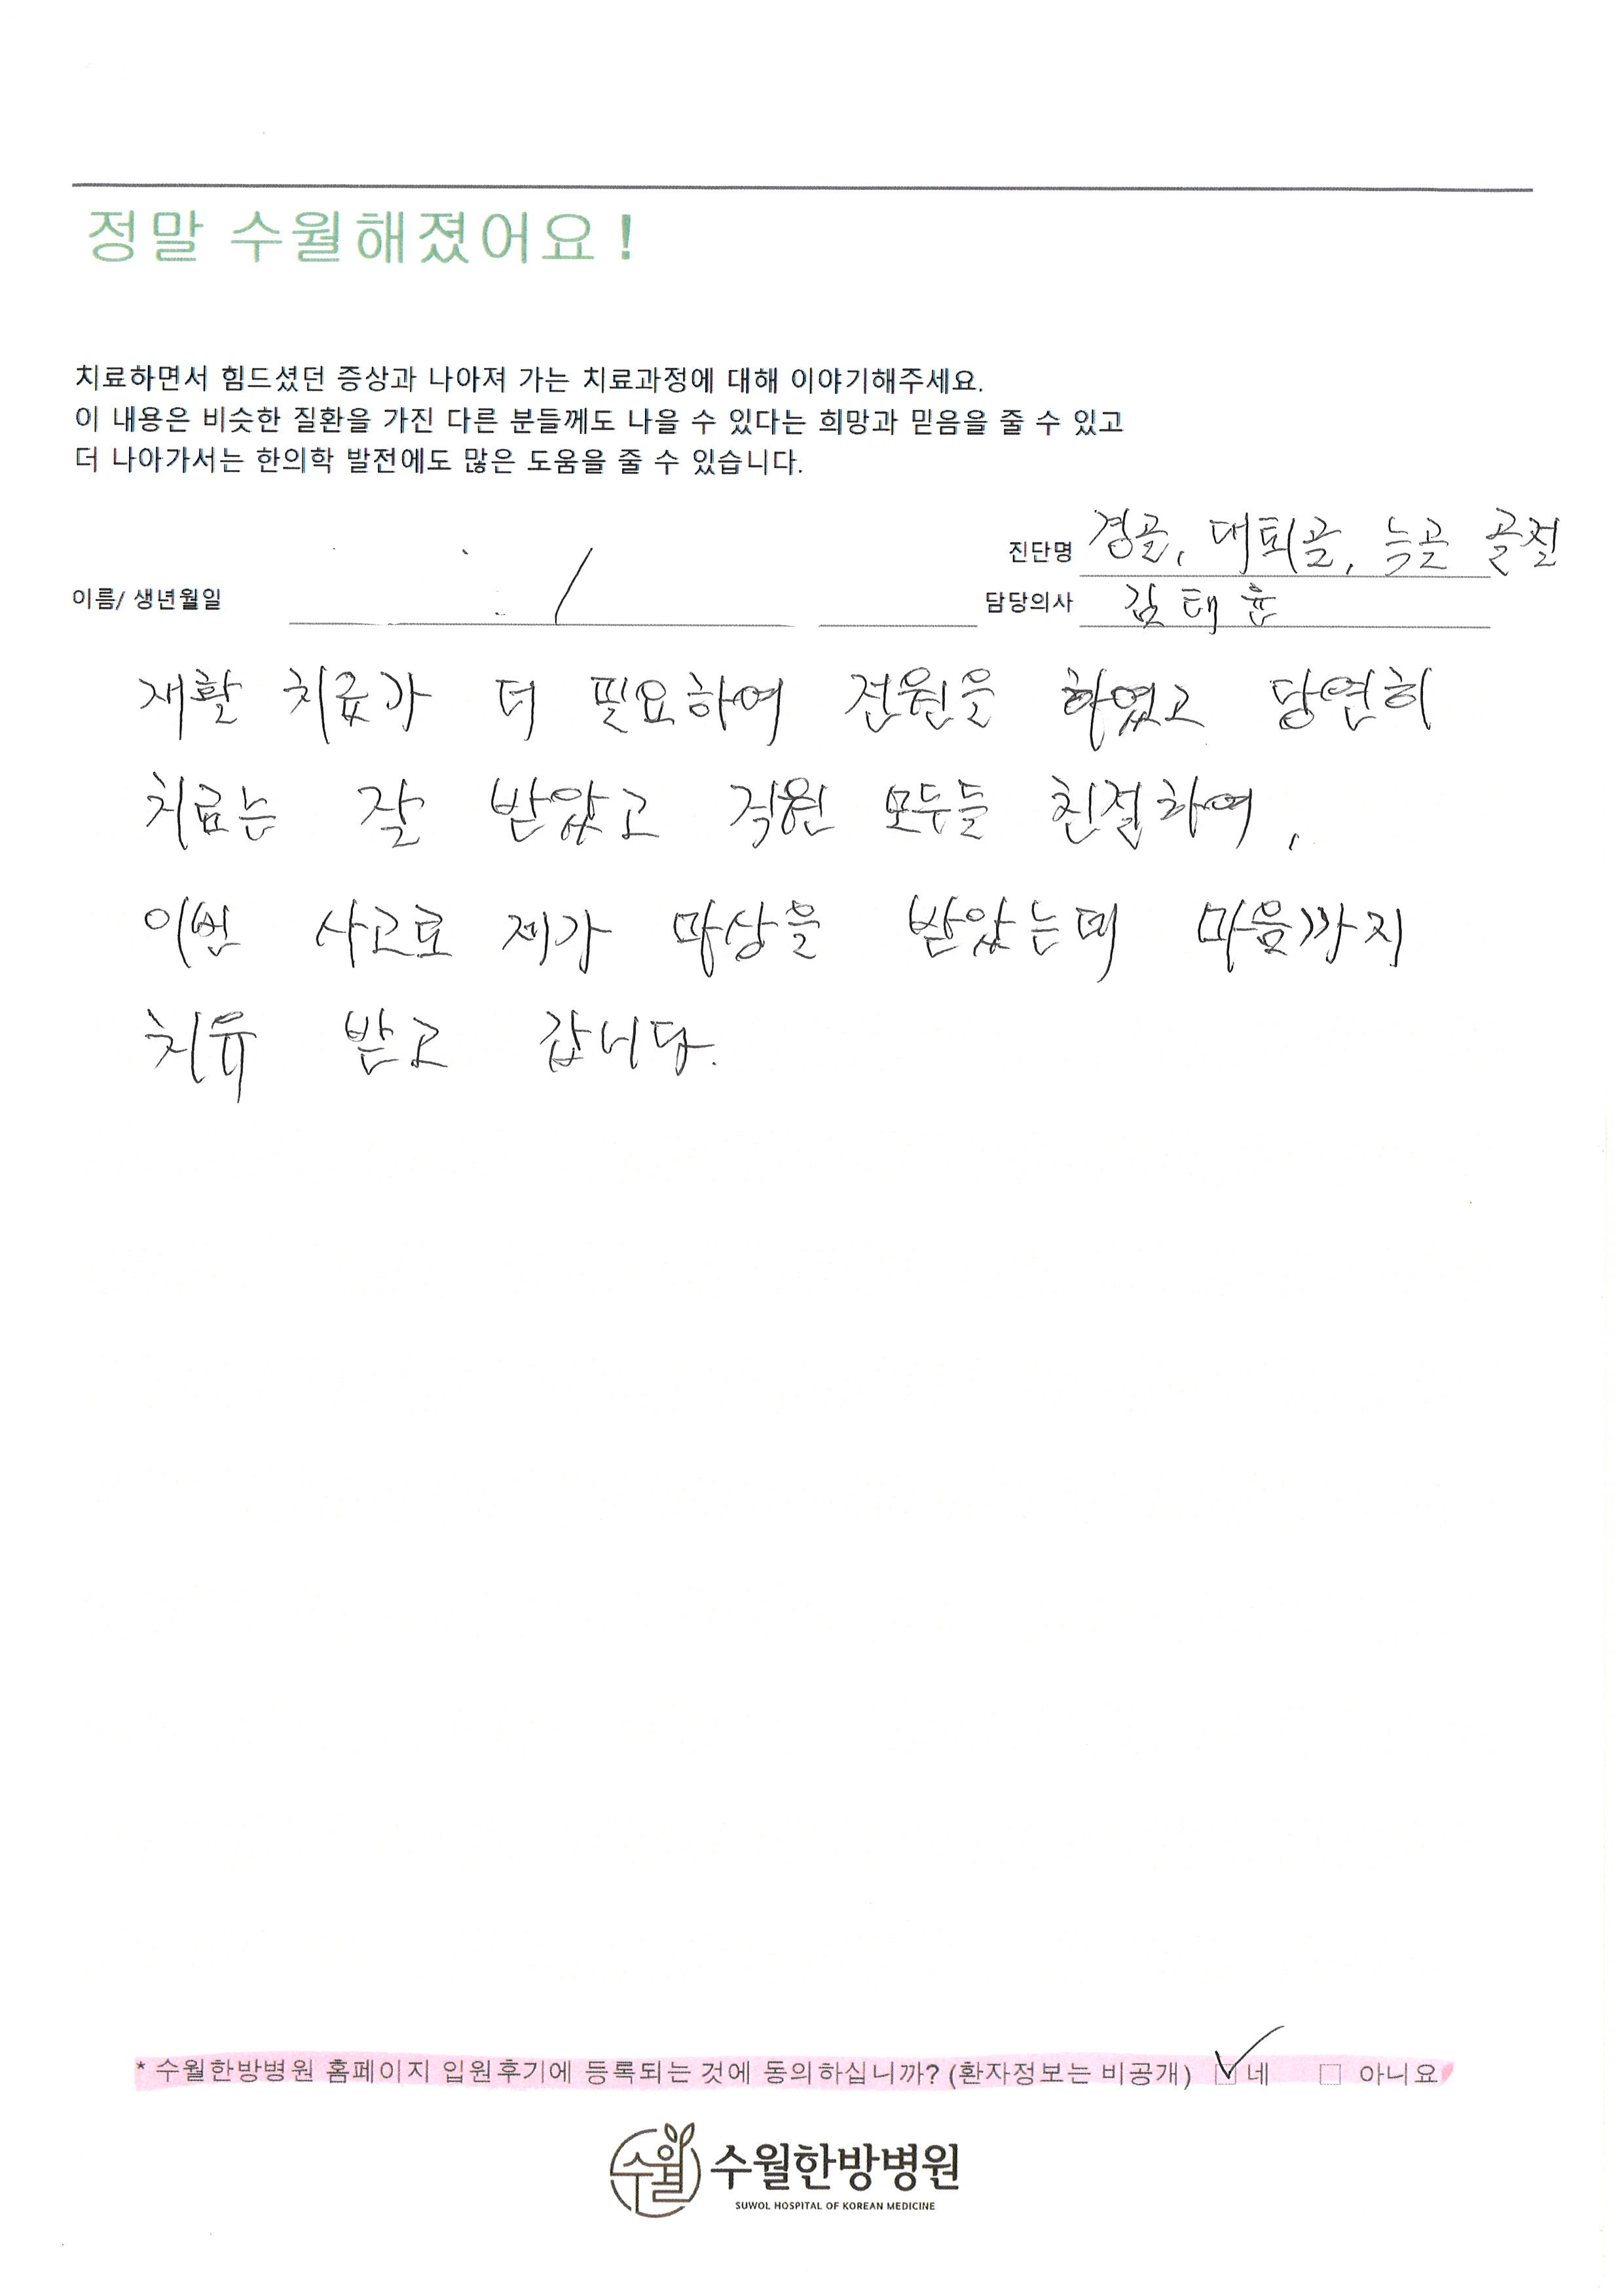 정말 수월해졌어요!
치료하면서 힘드셨던 증상과 나아져 가는 치료과정에 대해 이야기해주세요.
이 내용은 비슷한 질환을 가진 다른 분들께도 나을 수 있다는 희망과 믿음을 줄 수 있고
더 나아가서는 한의학 발전에도 많은 도움을 줄 수 있습니다.
진단명 경골, 대퇴골, 늑골 골절
이름/ 생년월일 / 담당의사 김태윤
재활 치료가 더 필요하여 전원을 하였고 당연히
치료는 잘 받았고 직원 모두들 친절하여,
이번 사고로 제가 마상을 받았는데 마음까지
치유 받고 갑니다.
* 수월한방병원 홈페이지 입원후기에 등록되는 것에 동의하십니까? (환자정보는 비공개) ☑ 네 □ 아니요
수월 수월한방병원
SUWOL HOSPITAL OF KOREAN MEDICINE